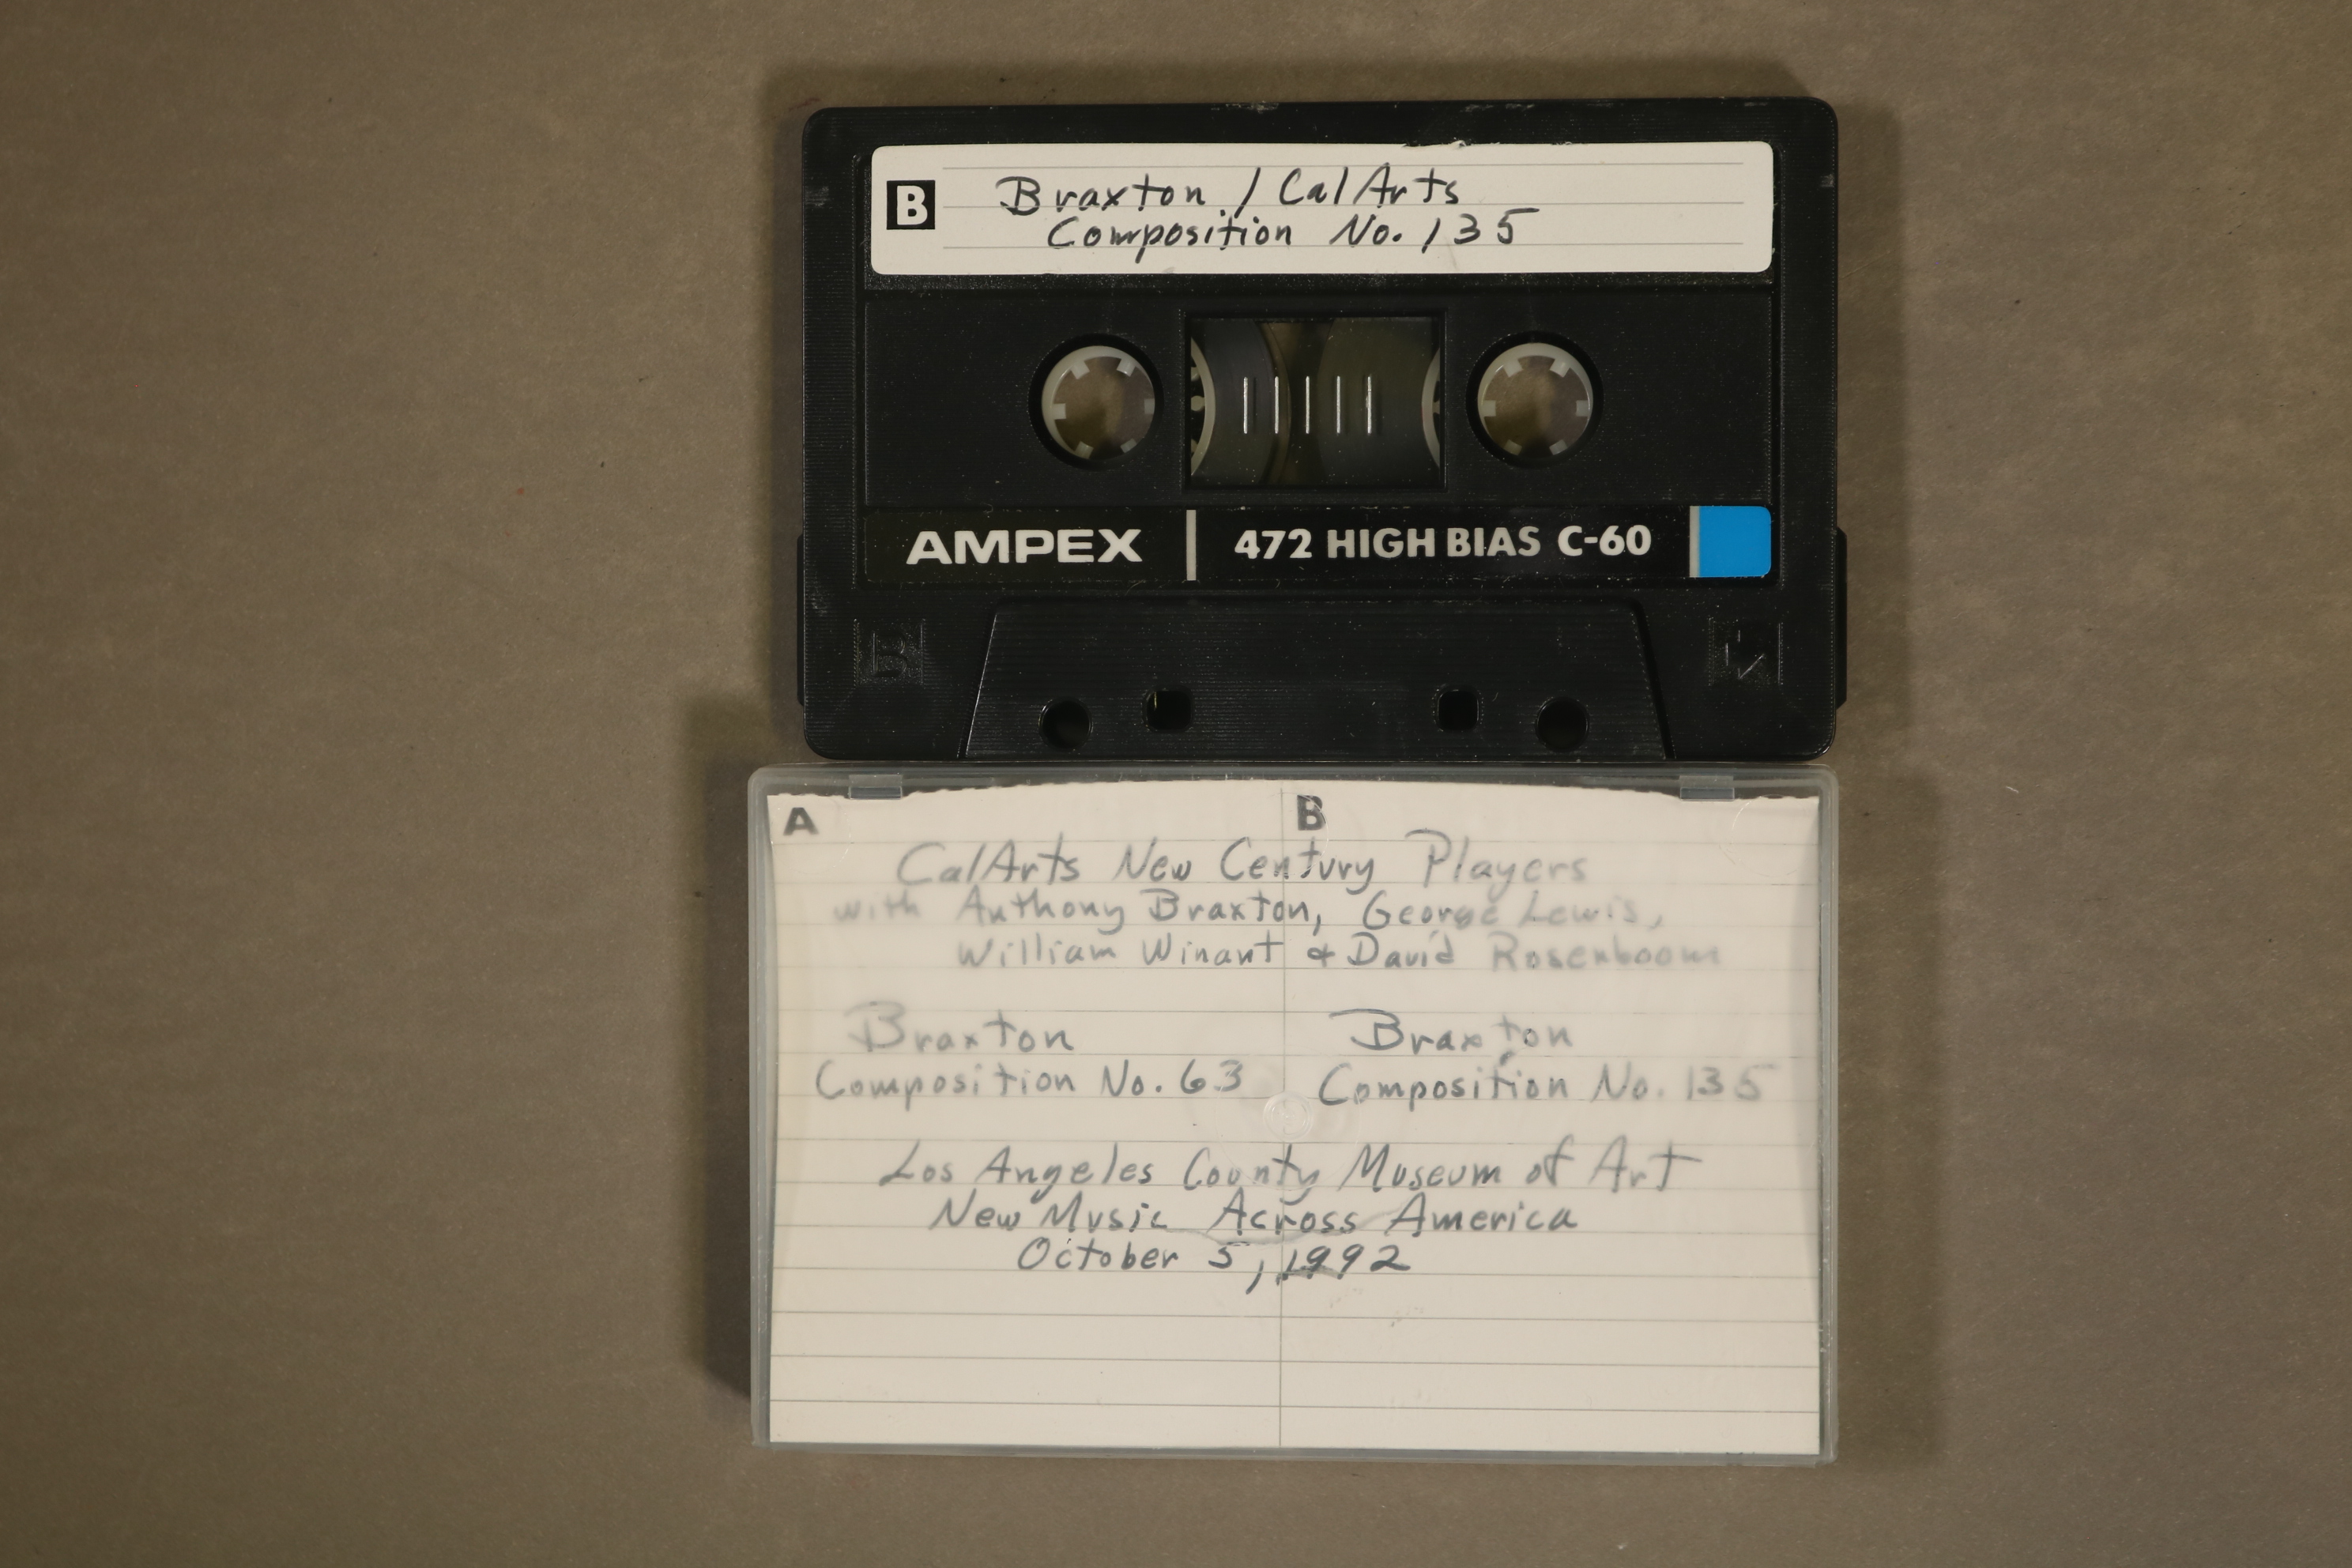 B
Braxton / CalArts
Composition No. 135
AMPEX
472 HIGH BIAS C-60
A
B
CalArts New Century Players
with Anthony Braxton, George Lewis,
William Winant & David Rosenboom
Braxton
Composition No. 63
Braxton
Composition No. 135
Los Angeles County Museum of Art
New Music Across America
October 5, 1992